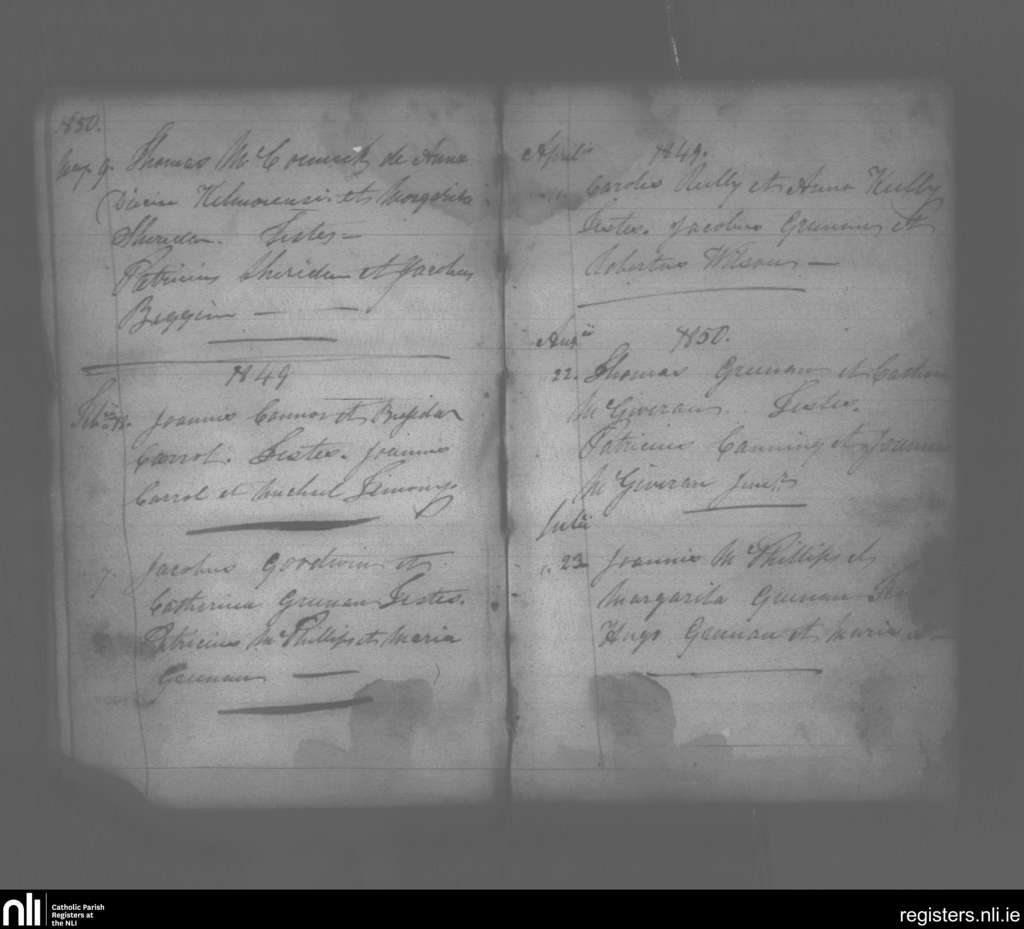 1850.
9. Thomas McCormick de Anna
Kilmorensi et Margarita
Sheridan. Testes
Patricius Sheridan et Jacobus
Beggin
1849
Joannes Connor et Brigida
Carrol. Testes. Joannes
Carrol et Michael
7. Jacobus Goodwin et
Catherina Grunan Testes.
Patricius McPhillips et Maria
Grunan
Aprilis 1849.
Carolus Reilly et Anna Kelly
Testes. Jacobus Grunan et
Robertus Wilson
1850.
22. Thomas Grunan et
McGiveran. Testes.
Patricius Canning et Joannes
McGiveran Junr
Julii
23 Joannes McPhillips et
Margarita Grunan
Hugo Grunan et Maria
nli
Catholic Parish
Registers at
the NLI
registers.nli.ie